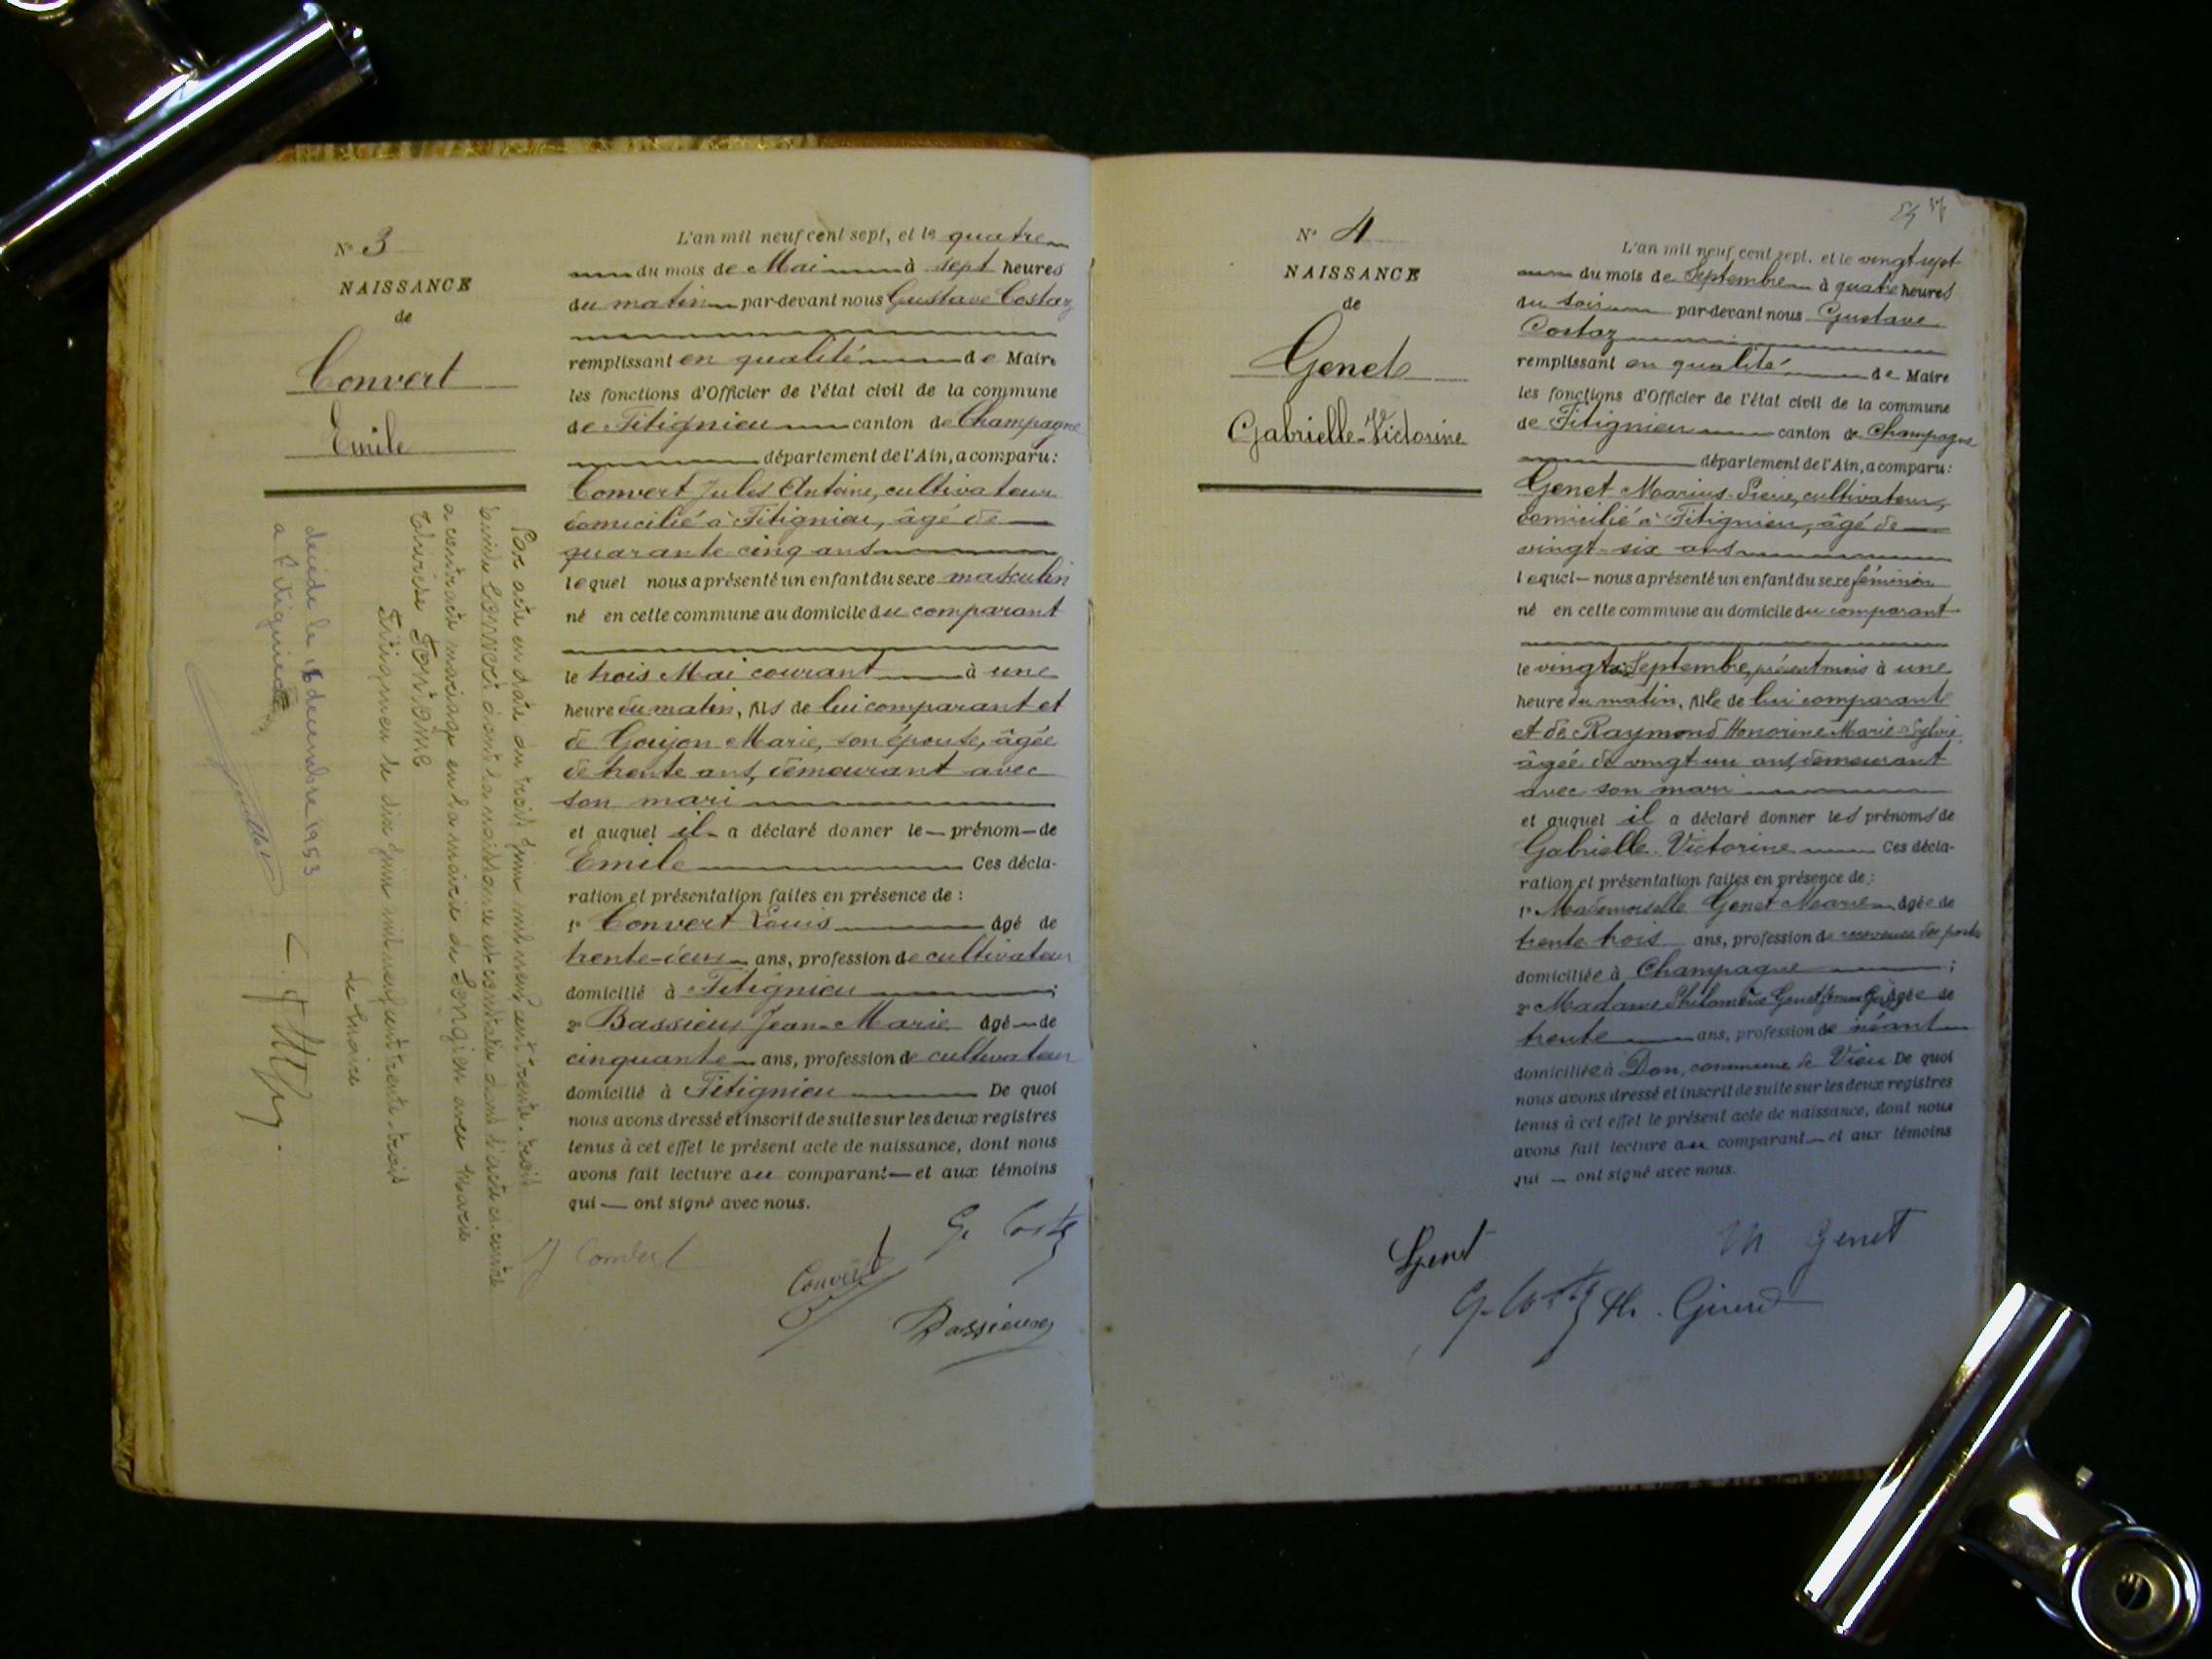 N° 3
NAISSANCE
de
Convert
Emile
L'an mil neuf cent sept, et le quatre
du mois de Mai à sept heures
du matin par-devant nous Gustave Costaz
remplissant en qualité de Maire
les fonctions d'Officier de l'état civil de la commune
de Fitignieu canton de Champagne
département de l'Ain, a comparu:
Convert Jules Antoine, cultivateur
domicilié à Fitignieu, âgé de
quarante cinq ans
lequel nous a présenté un enfant du sexe masculin
né en cette commune au domicile du comparant
le trois Mai courant à une
heure du matin, fils de lui comparant et
de Goujon Marie, son épouse, âgée
de trente ans, demeurant avec
son mari
et auquel il a déclaré donner le prénom de
Emile Ces décla-
ration et présentation faites en présence de :
1° Convert Louis âgé de
trente-deux ans, profession de cultivateur
domicilié à Fitignieu ;
2° Bassieux Jean-Marie âgé de
cinquante ans, profession de cultivateur
domicilié à Fitignieu De quoi
nous avons dressé et inscrit de suite sur les deux registres
tenus à cet effet le présent acte de naissance, dont nous
avons fait lecture au comparant et aux témoins
qui ont signé avec nous.
J Convert
Convert
G. Costaz
Bassieux
Par acte en date du trois juin mil neuf cent trente-trois
Emile Convert dont la naissance est constatée dans l'acte ci-contre
a contracté mariage en la mairie de Songieu avec Marie
Thérèse
Fitignieu le dix juin mil neuf cent trente-trois
Le Maire
décédé le 16 décembre 1953
a Fitignieu
N° 4
NAISSANCE
de
Genet
Gabrielle-Victorine
L'an mil neuf cent sept, et le vingt sept
du mois de Septembre à quatre heures
du soir par-devant nous Gustave
Costaz
remplissant en qualité de Maire
les fonctions d'Officier de l'état civil de la commune
de Fitignieu canton de Champagne
département de l'Ain, a comparu:
Genet Marius-Pierre, cultivateur,
domicilié à Fitignieu, âgé de
vingt-six ans
lequel nous a présenté un enfant du sexe féminin
né en cette commune au domicile du comparant
le Septembre, présent mois à une
heure du matin, fille de lui comparant
et de Raymond Honorine Marie-Sylvie
âgée de vingt un ans, demeurant
avec son mari
et auquel il a déclaré donner les prénoms de
Gabrielle-Victorine Ces décla-
ration et présentation faites en présence de :
1° Mademoiselle Genet Marie âgée de
trente trois ans, profession de receveuse des postes
domiciliée à Champagne ;
2° Madame Philomène Genet femme âgée de
trente ans, profession de néant
domiciliée à Don, commune de Vieu De quoi
nous avons dressé et inscrit de suite sur les deux registres
tenus à cet effet le présent acte de naissance, dont nous
avons fait lecture au comparant et aux témoins
qui ont signé avec nous.
Genet
M Genet
G. Costaz